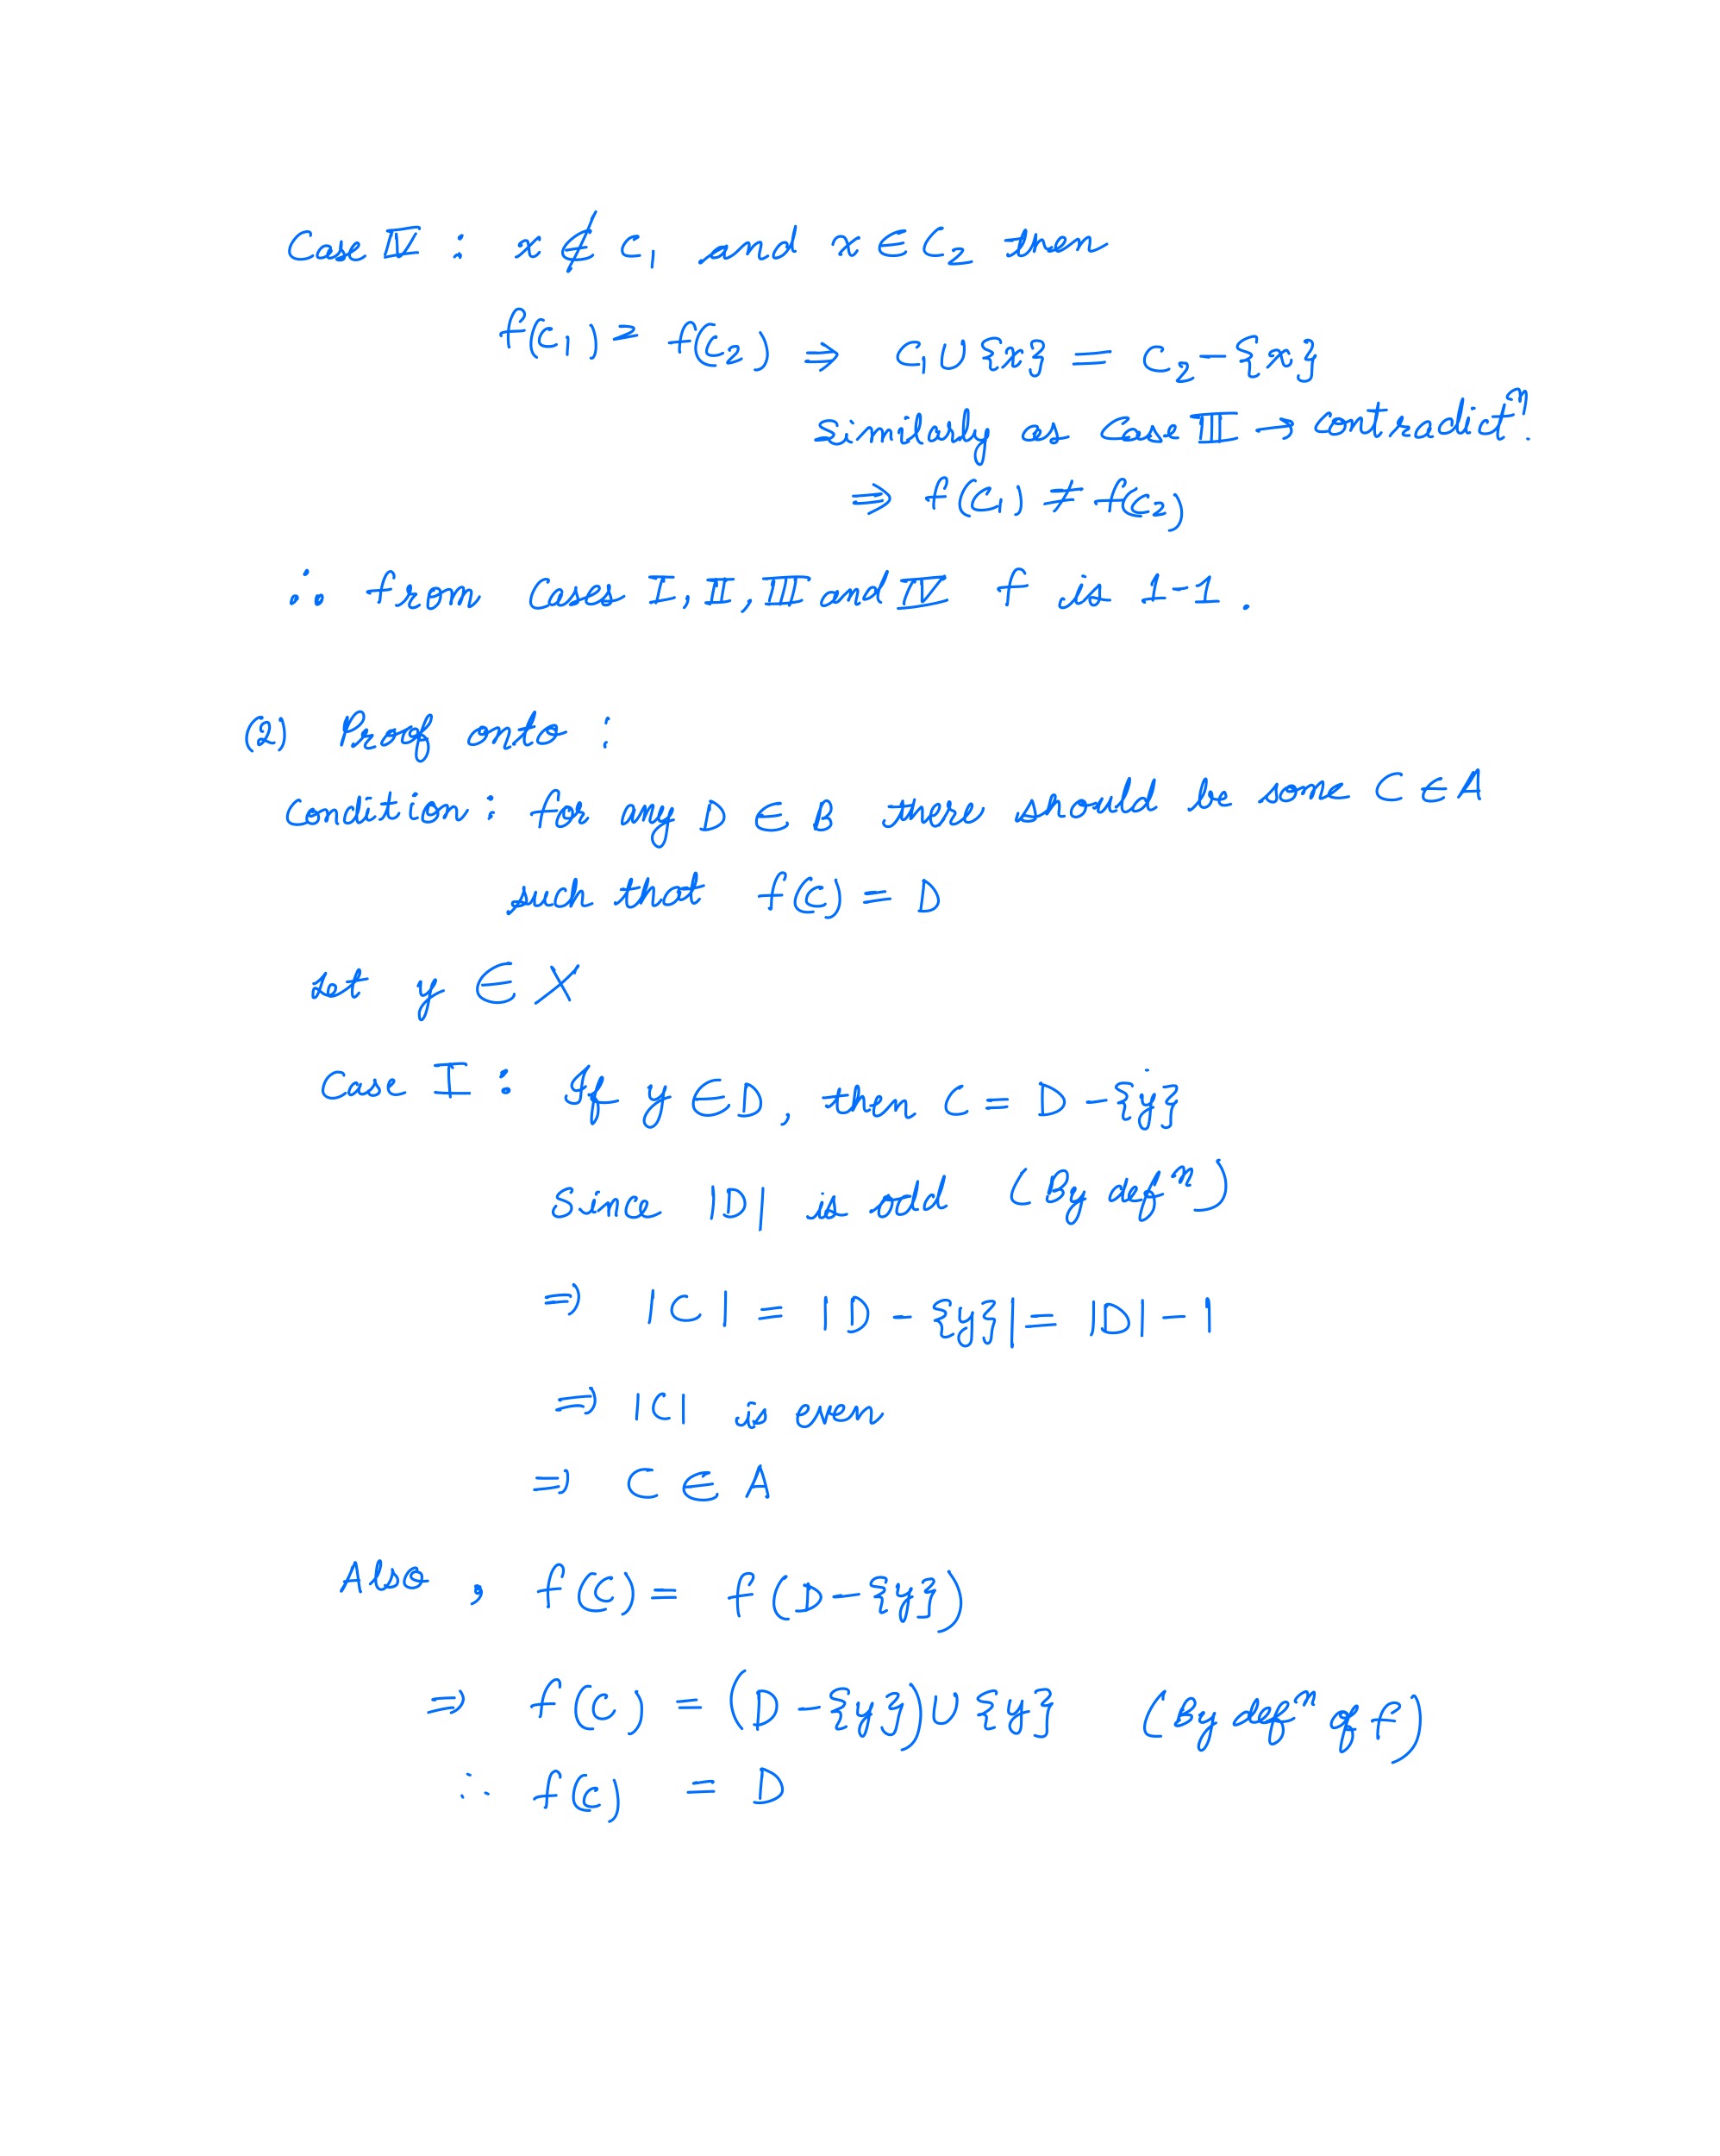 Case IV : x ∉ C₁ and x ∈ C₂ then
f(C₁) = f(C₂) ⇒ C₁ ∪ {x} = C₂ - {x}
similarly as Case III → contradictⁿ.
⇒ f(C₁) ≠ f(C₂)
∴ from Cases I, II, III and IV f is 1-1.
(2) Proof onto :
Condition : for any D ∈ B there should be some C ∈ A
such that f(C) = D
Let y ∈ X
Case I : If y ∈ D, then C = D - {y}
Since |D| is odd (By defⁿ)
⇒ |C| = |D - {y}| = |D| - 1
⇒ |C| is even
⇒ C ∈ A
Also , f(C) = f(D - {y})
⇒ f(C) = (D - {y}) ∪ {y} (By defⁿ of f)
∴ f(C) = D